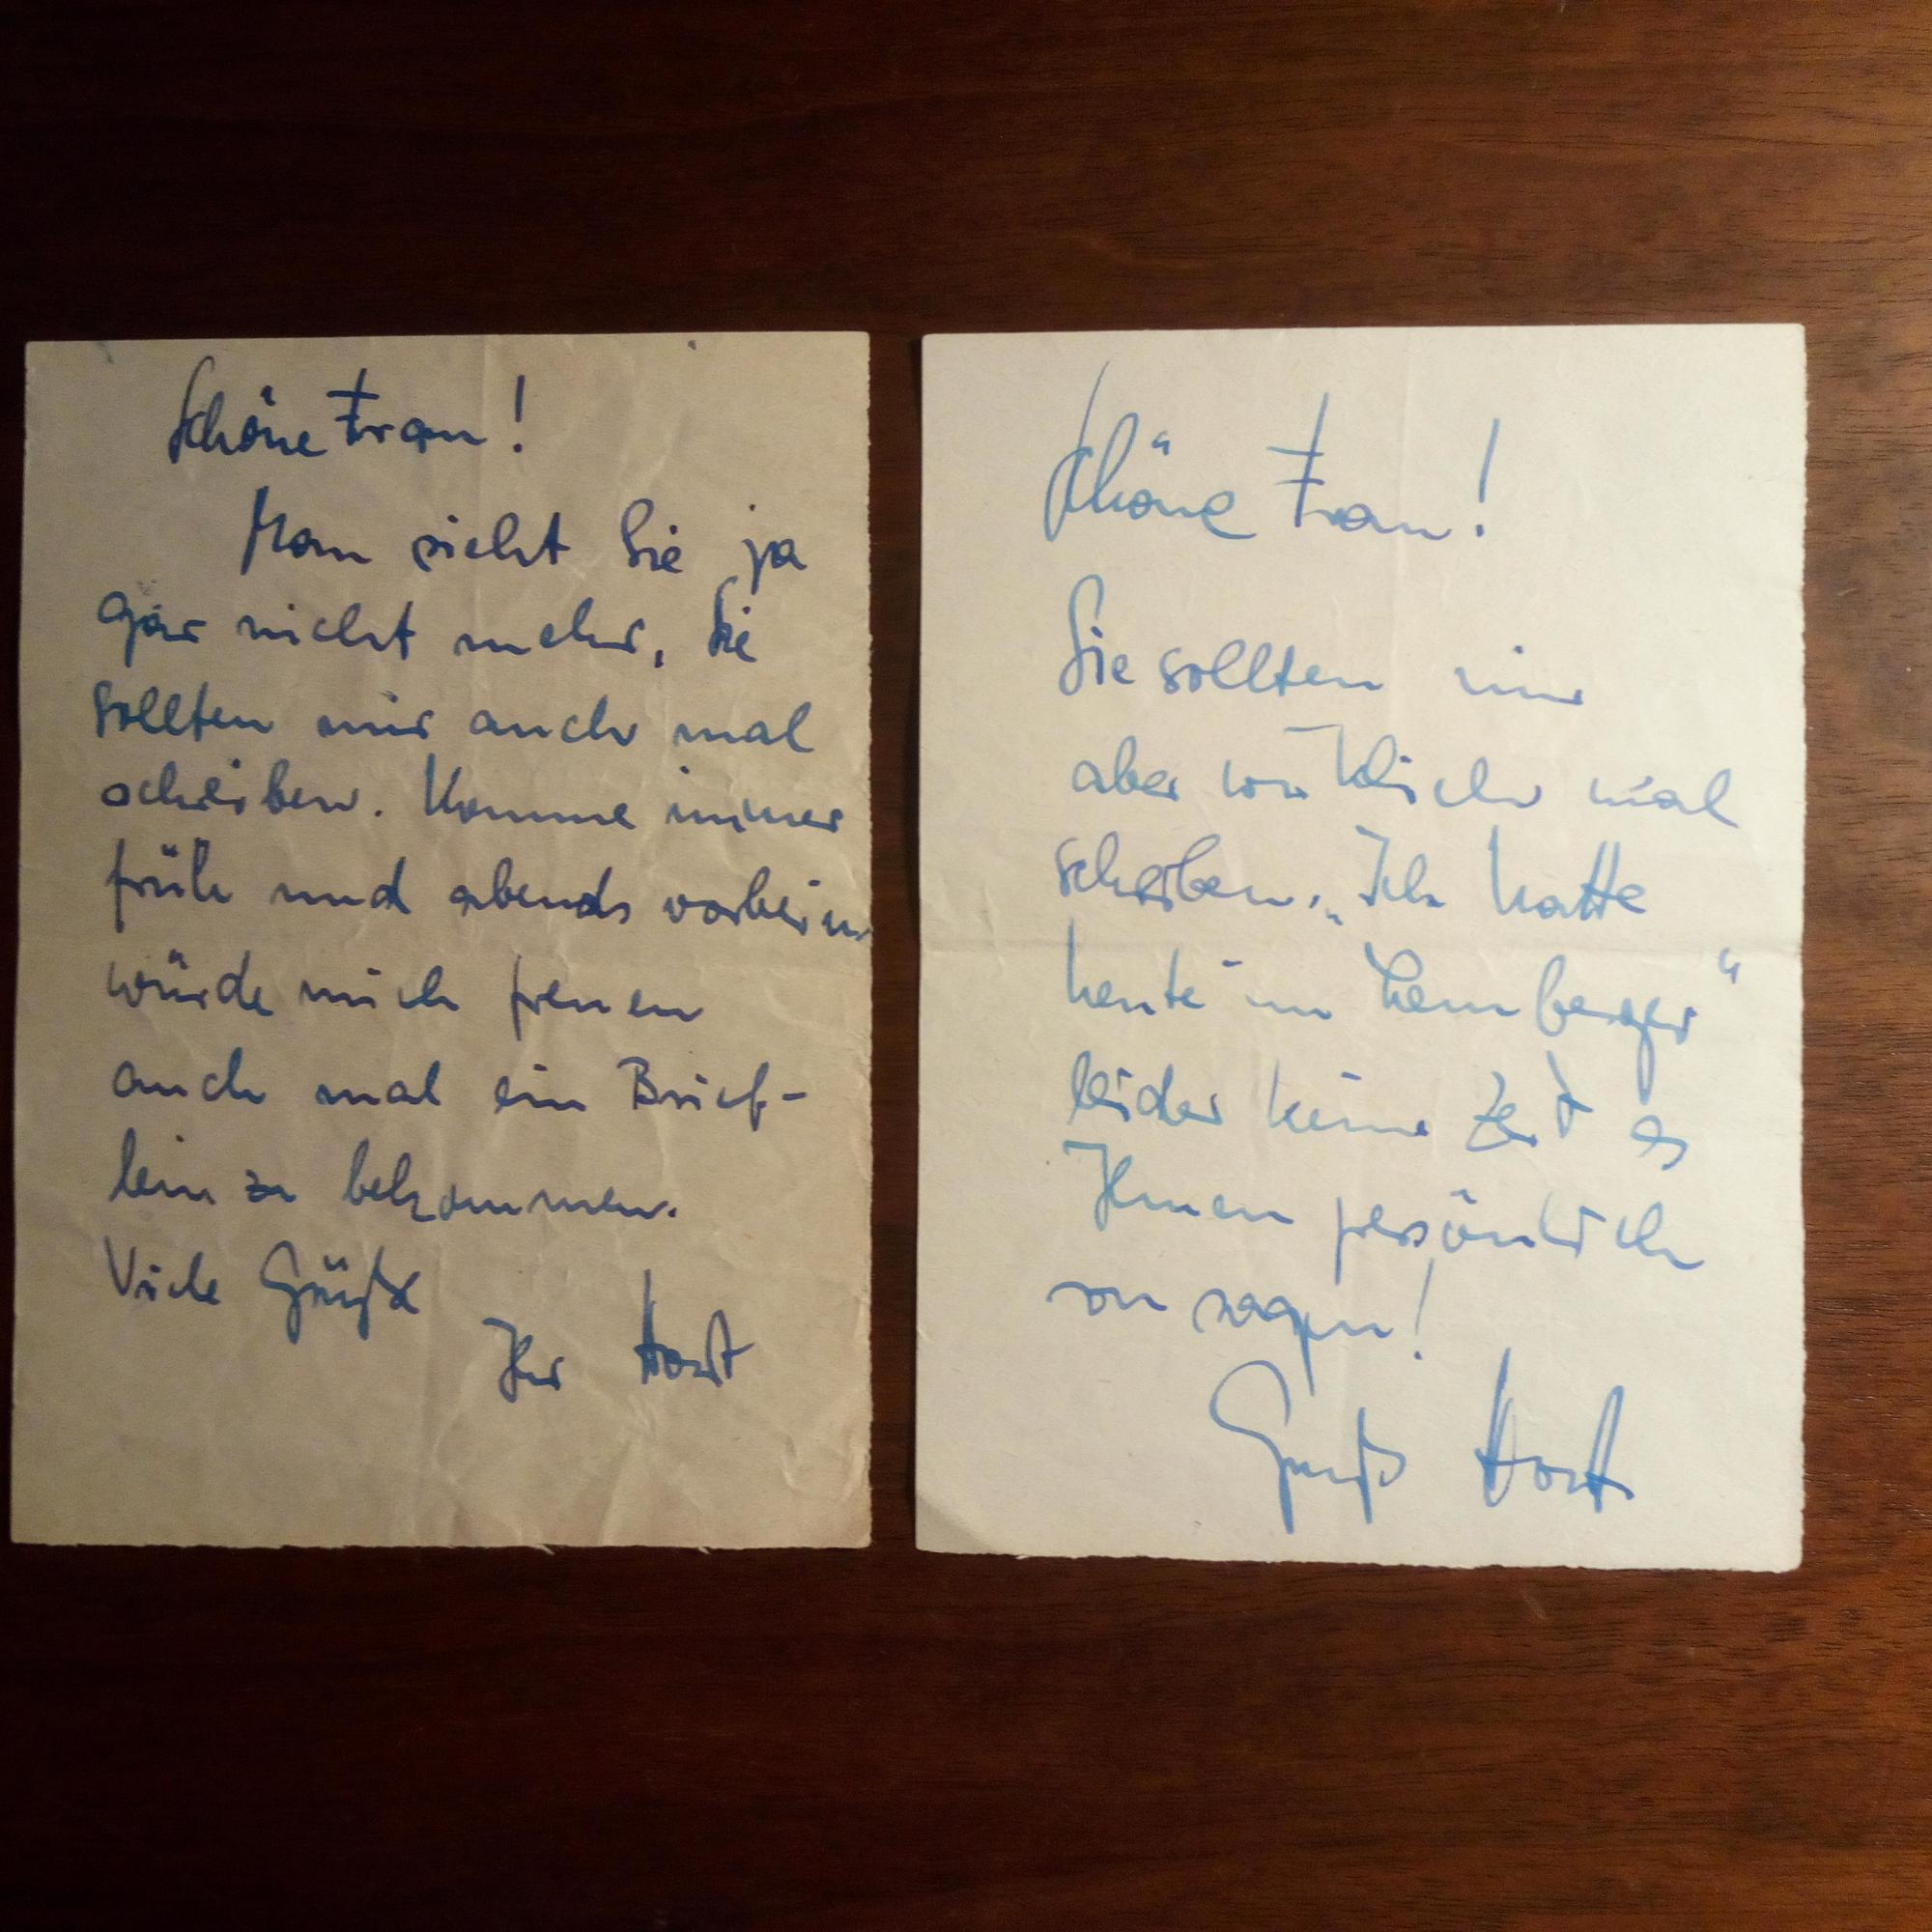 Schöne Frau!
Man sieht Sie ja
gar nicht mehr, Sie
sollten mir auch mal
schreiben. Komme immer
früh und abends vorbei u.
würde mich freuen
auch mal ein Brief-
lein zu bekommen.
Viele Grüße
Ihr Horst
Schöne Frau!
Sie sollten mir
aber wirklich mal
schreiben. „Ich hatte
heute im Lemberger“
leider keine Zeit es
Ihnen persönlich
zu sagen!
Gruß Horst